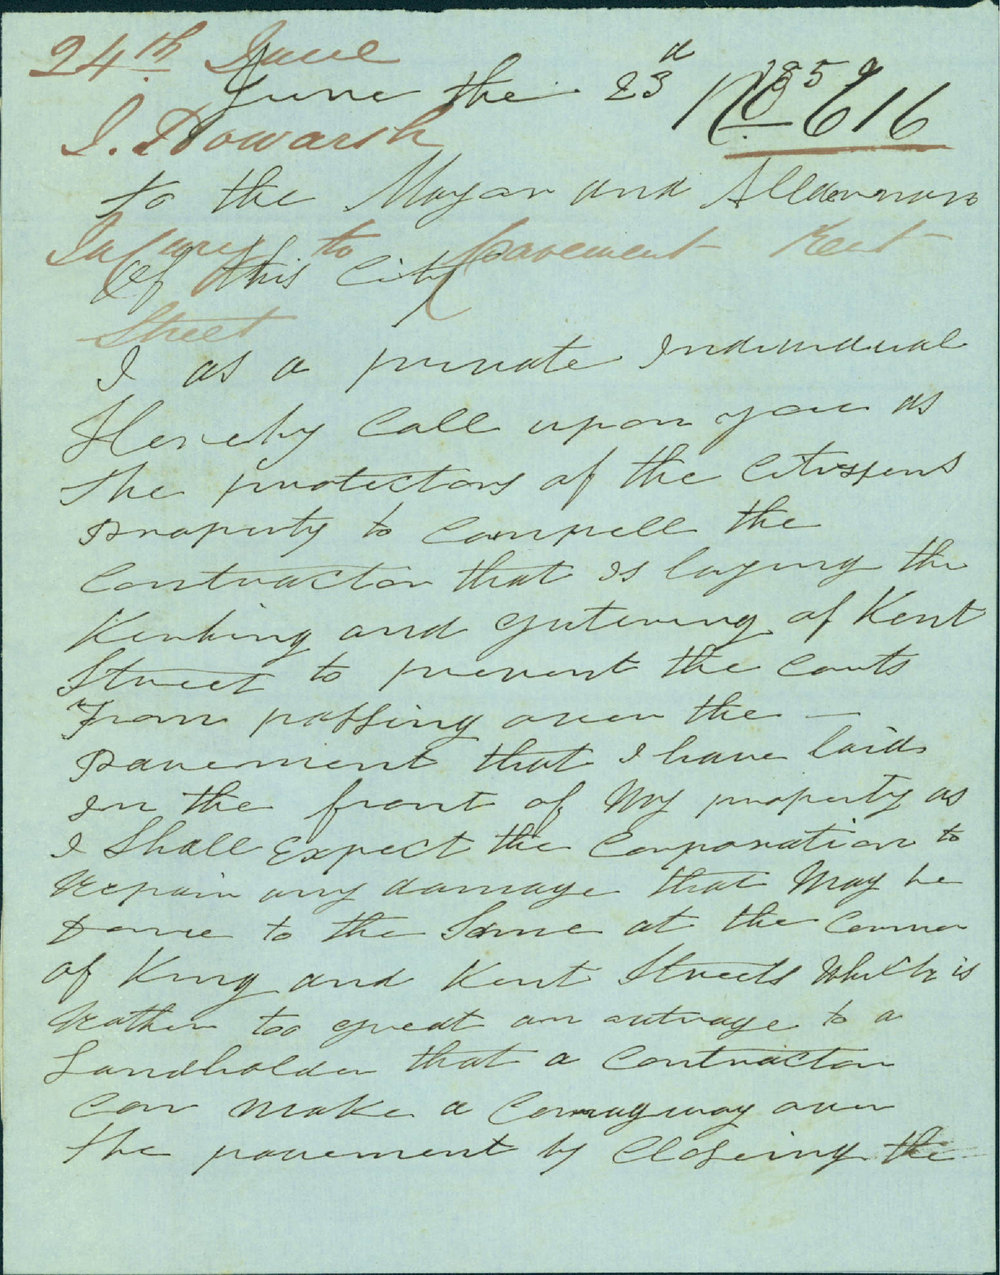 24th June
June the 23d 1859
No 616
J. Howarth
to the Mayor and Alldermans
Injury to pavement Kent
Of this City
Street
I as a private Individual
Hereby Call upon you as
the protectors of the Citizens
property to Compell the
Contractor that is laying the
Kerbing and gutering of Kent
Street to prevent the Carts
From passing over the
pavement that I have laid
in the front of My property as
I Shall Expect the Corporation to
Repair any damage that May be
Done to the Same at the Corner
of King and Kent Streets Which is
Rather too great an outrage to a
Landholder that a Contractor
Can Make a Carragway over
the pavement by Closeing the